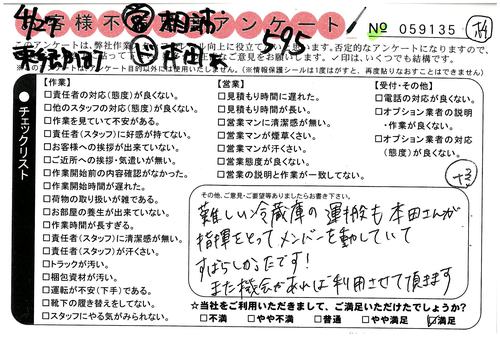 お客様不満足度アンケート
4/27
No 059135
このアンケートは、弊社作業
本田
595
※このアンケートは目的以外には使用いたしません。(※情報保護シールは1度はがすと、再度貼りなおすことはできません)
チェックリスト
【作業】
□責任者の対応(態度)が良くない。
□他のスタッフの対応(態度)が良くない。
□作業を見ていて不安がある。
□責任者(スタッフ)に好感が持てない。
□お客様への挨拶が出来ていない。
□ご近所への挨拶・気遣いが無い。
□作業開始前の内容確認がなかった。
□作業開始時間が遅れた。
□荷物の取り扱いが雑である。
□お部屋の養生が出来ていない。
□作業時間が長すぎる。
□責任者(スタッフ)に清潔感が無い。
□責任者(スタッフ)が汗くさい。
□トラックが汚い。
□梱包資材が汚い。
□運転が不安(下手)である。
□靴下の履き替えをしてない。
□スタッフにやる気がみられない。
【営業】
□見積もり時間に遅れた。
□見積もり時間が長い。
□営業マンに清潔感が無い。
□営業マンが煙草くさい。
□営業マンが汗くさい。
□営業態度が良くない。
□営業の説明と作業が一致してない。
【受付・その他】
□電話の対応が良くない。
□オプション業者の説明
・作業が良くない。
□オプション業者の対応
(態度)が良くない。
その他、ご意見・ご要望等ありましたらお書き下さい。
難しい冷蔵庫の運搬も本田さんが
指揮をとってメンバーを動していて
すばらしかったです!
また機会があればご利用させて頂ます
☆当社をご利用いただきまして、ご満足いただけたでしょうか?
□不満 □やや不満 □普通 □やや満足 ☑満足